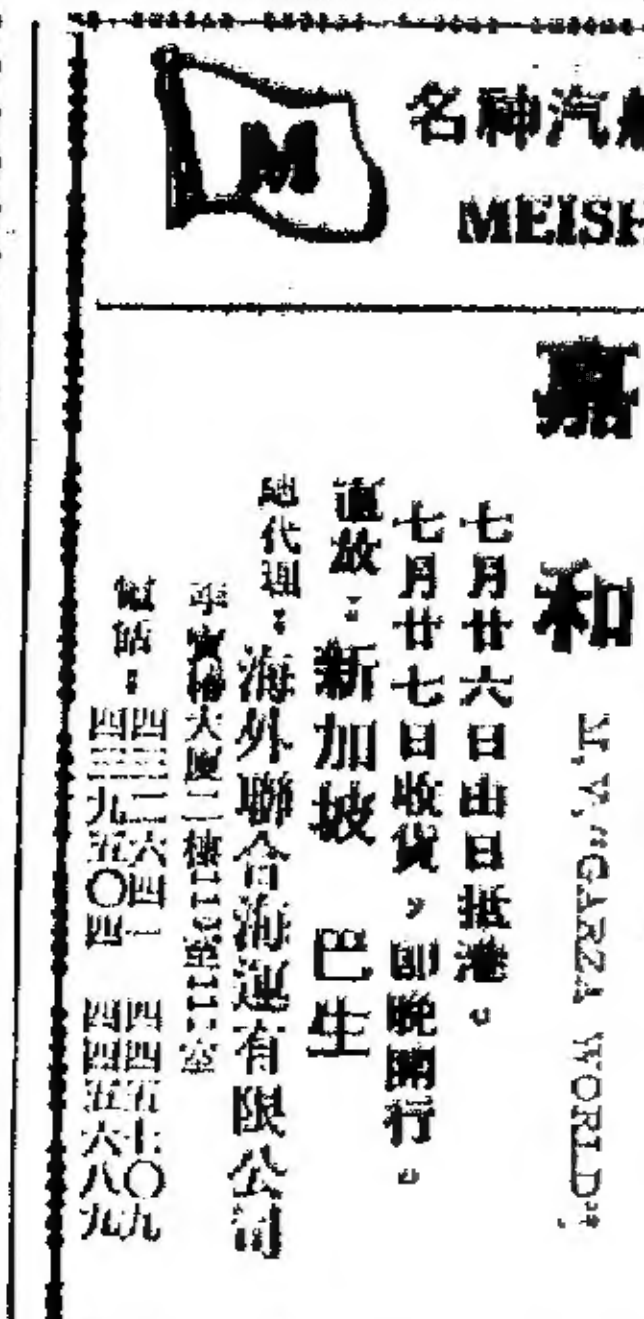 M
名神汽
MEISH
嘉和
M.V. "GARZA WORLD"
七月廿六日由日抵港。
七月廿七日收貨，即晚開行。
直放：新加坡 巴生
總代理：海外聯合海運有限公司
大廈二樓
電話：
四三二六四一 四四五七〇九
四三九五〇四 四四五六八九